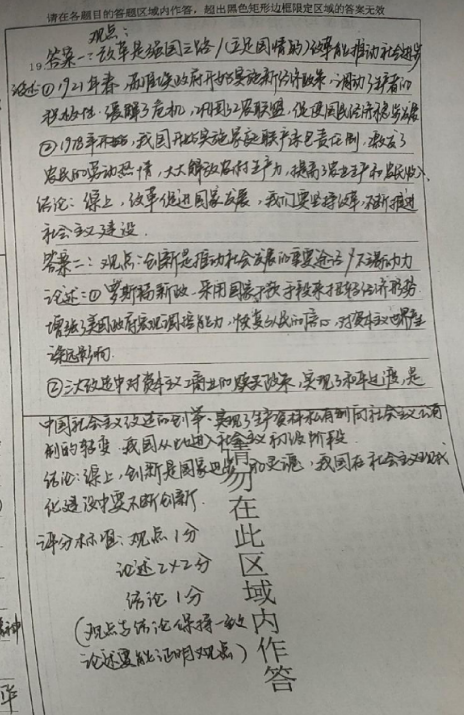 请在各题目的答题区域内作答，超出黑色矩形边框限定区域的答案无效
观点：
19 答案一：改革是强国之路/（立足国情的）改革能推动社会进步
论述：①1921年春，苏维埃政府开始实施新经济政策，调动了生产者的
积极性，缓解了危机，巩固工农联盟，促使国民经济稳步发展
②1978年，我国开始实施家庭联产承包责任制，激发了
农民的劳动热情，大大解放农村生产力，提高了农业生产和农民收入。
结论：综上，改革促进国家发展，我们要坚持改革，不断推进
社会主义建设。
答案二：观点：创新是推动社会发展的重要途径/不竭动力
论述：①罗斯福新政，采用国家干预手段来扭转经济形势
增强了美国政府宏观调控能力，恢复公民的信心，对资本主义世界产生
深远影响。
②三大改造中对资本主义工商业的赎买政策，实现了和平过渡，是
中国社会主义改造的创举，实现了生产资料私有制向社会主义公有
制的转变，我国从此进入社会主义初级阶段。
结论：综上，创新是国家的灵魂，我国在社会主义现代
化建设中要不断创新。
评分标准：观点1分
论述2×2分
结论1分
（观点与结论保持一致
论述要能证明观点）
请勿在此区域内作答
神
华